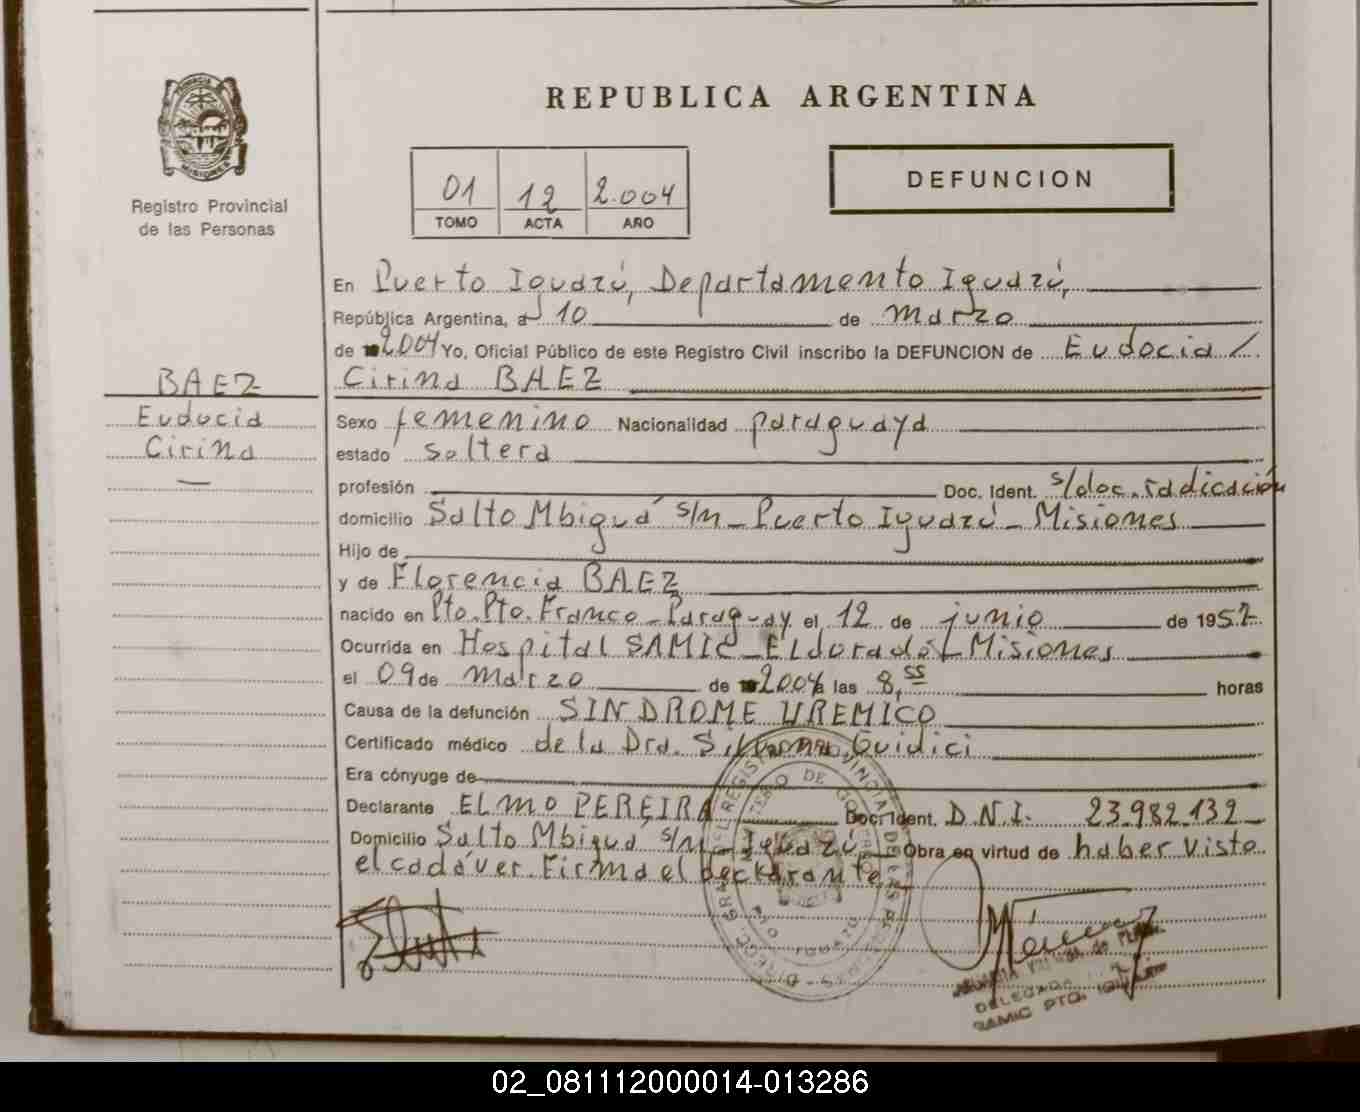 REPUBLICA ARGENTINA
Registro Provincial
de las Personas
01 12 2.004
TOMO ACTA AÑO
DEFUNCION
En Puerto Iguazú, Departamento Iguazú,
República Argentina, a 10 de marzo
de 2004 Yo, Oficial Público de este Registro Civil inscribo la DEFUNCION de Eudocia
Cirina BAEZ
BAEZ
Eudocia
Cirina
Sexo femenino Nacionalidad paraguaya
estado soltera
profesión Doc. Ident. s/doc. radicación
domicilio Salto Mbiguá s/n - Puerto Iguazú - Misiones
Hijo de
y de Florencia BAEZ
nacido en Pto. Pto. Franco - Paraguay el 12 de junio de 1957
Ocurrida en Hospital SAMIC - Eldorado - Misiones
el 09 de marzo de 2004 a las 8,55 horas
Causa de la defunción SINDROME UREMICO
Certificado médico de la Dra. Silvana Guidici
Era cónyuge de
Declarante ELMO PEREIRA Doc. Ident. D.N.I. 23.982.132
Domicilio Salto Mbiguá s/n - Iguazú - Obra en virtud de haber visto
el cadáver. Firma el declarante
DELEGADA
SAMIC PTO. IGUAZU
02_081112000014-013286